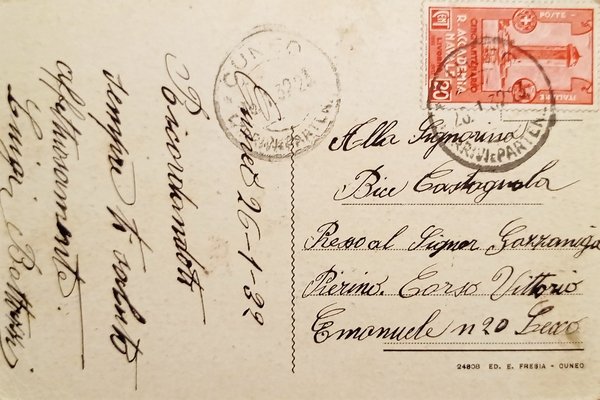 Cuneo 26-1-32
Ricordandoti
sempre ti saluto
affettuosamente
Luigi
Alla Signorina
Bice Castagnola
Presso al Signor Gazzaniga
Pierino. Corso Vittorio
Emanuele n 20 Lecco
24808 ED. E. FRESIA - CUNEO
POSTE ITALIANE
R. ACCADEMIA
NAVALE
20
CUNEO
ARRIVI E PARTENZE
26.1.32
ARRIVI E PARTEN